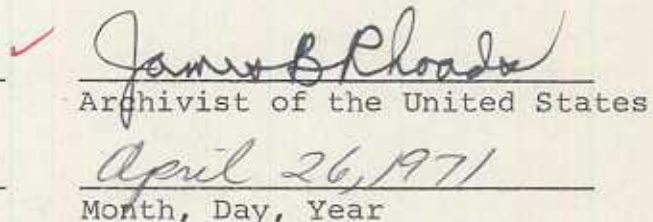 James B Rhoads
Archivist of the United States
April 26, 1971
Month, Day, Year